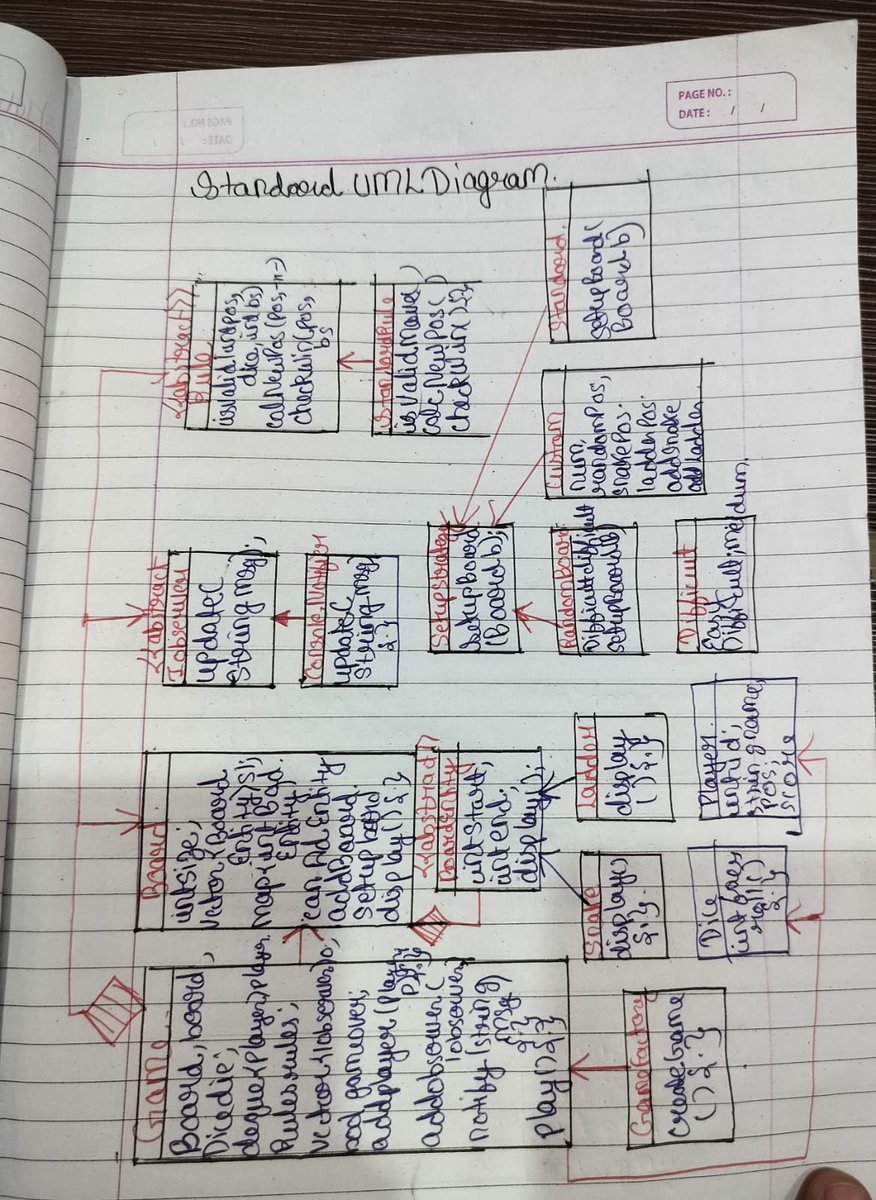 PAGE NO.:
DATE: / /
Standard UML Diagram.
Game
Board, board
Dice die;
deque<Player>Player
Rules rules;
Vector<Iobserver>o;
bool gameover;
addplayer(Player
p){}
addobserver(
Iobserver
notify(string
msg)
{}
play(){}
GameFactory
CreateGame
(){}
Board
int size;
Vector<Board
Entity>
map<int
Entity
can Ad Entity
addBoard.
Setup board
display(){}
<<abstract>>
BoardEntity
int start,
int end;
display();
Snake
display()
{}
Ladder
display
(){}
Dice
int faces
roll()
{}
Player
int id;
string name,
pos;
score
<<abstract
Iobserver
update(
String msg);
ConsoleNotifier
update(
String msg)
{}
SetupStrategy
Setupboard
(Board b);
RandomBoard
Difficult difficult
setupboard(b)
Difficult
Easy,
Difficult, medium.
<<abstract>>
Rule
isvalid(int pos,
dice, int bs)
calNewPos(pos,
checkWin(pos,
bs
StandardRule
isValidmove()
calcNewPos(
checkWin(){}
Custom
num,
randomPos,
snakePos.
ladderPos.
addsnake
addladder
Standard.
Setupboard(
Board b)